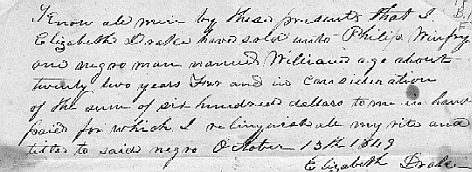 Know all min by these presents that I
Elizabeth Drake have sold unto Philip Winfry
one negro man named William age about
twenty two years Four and in consideration
of the sum of six hundred dollars to me in hand
paid for which I relinquish all my rite and
title to said negro October 13th 1849
Elizabeth Drake